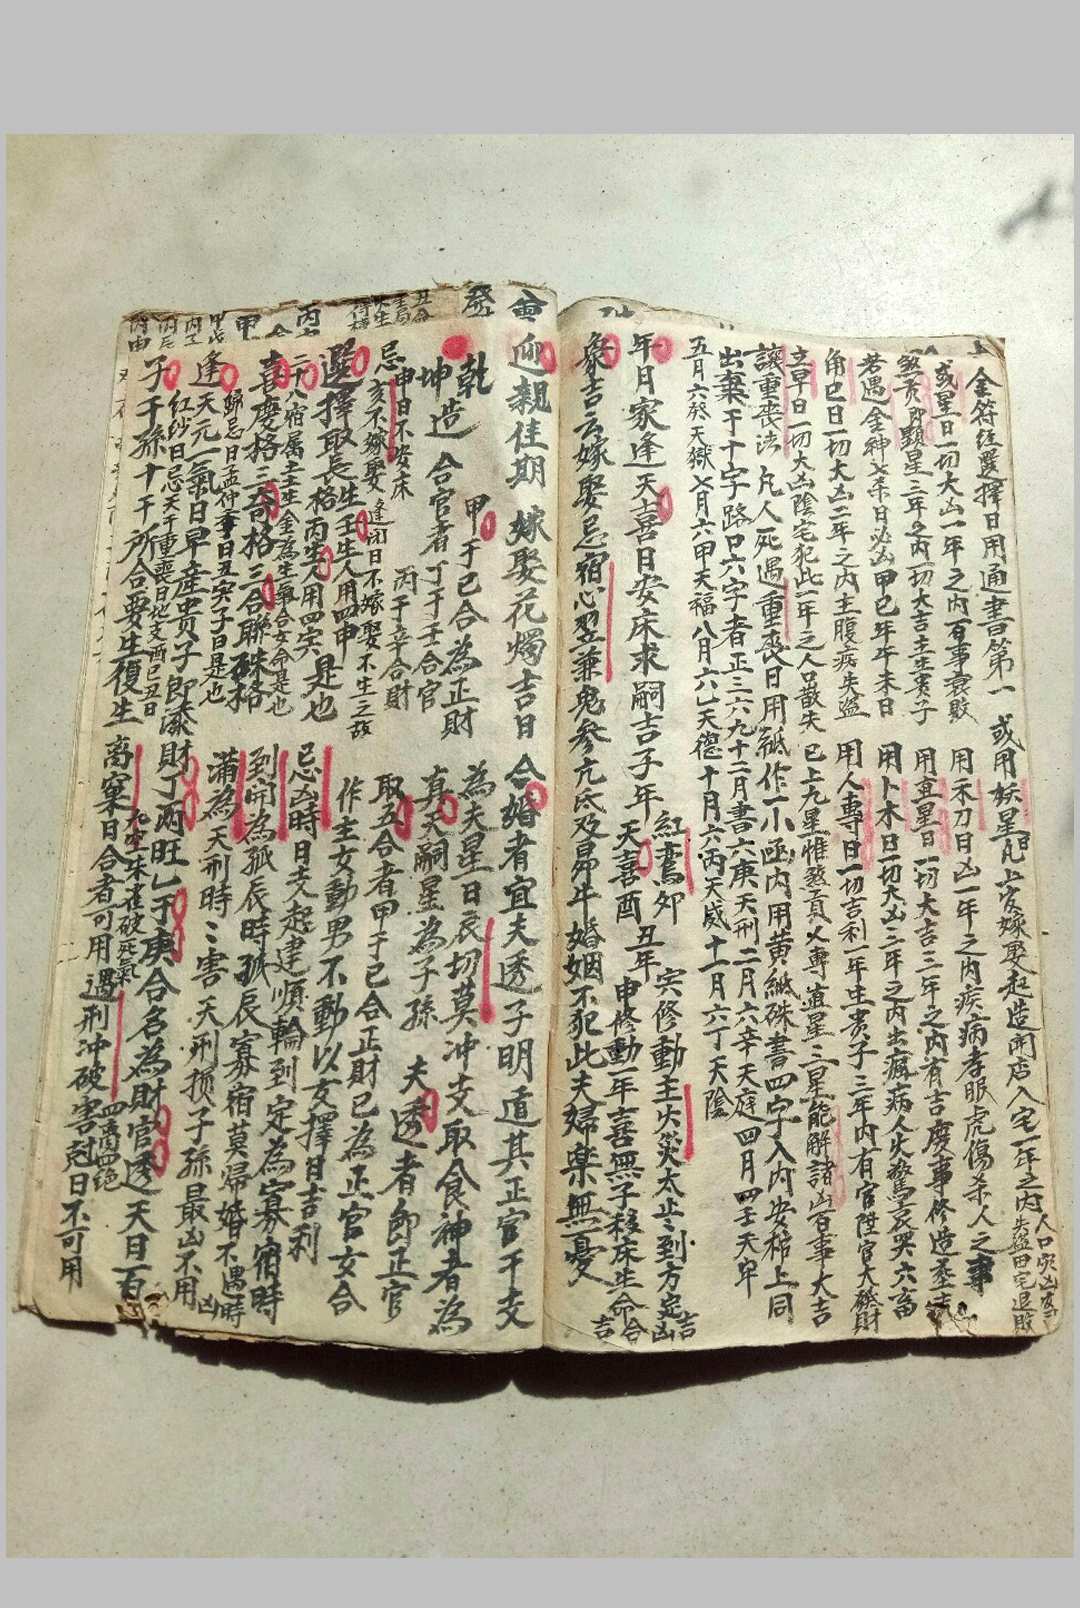 金符經選擇日用通書第一
或用妖星日凡上官嫁娶起造開店入宅一年之內人口灾凶
失盜田宅退敗
或星日一切大凶一年之內百事衰敗
用禾刀日凶一年之內疾病孝服虎傷杀人之事
煞貢即顯星三年之內一切大吉主生貴子
用直星日一切大吉三年之內有吉慶事修造
若遇金神七杀日必凶甲己年午未日
用卜木日一切大凶三年之內出瘋病人火驚哀哭六畜
角已日一切大凶二年之內主腹疾失盜
用人專日一切吉利一年生貴子三年內有官陞官大發財
立早日一切大凶陰宅犯此一年之人口散失
已上九星惟煞貢人專直星三星能解諸凶百事大吉
讓重喪法凡人死遇重喪日用紙作一小函內用黃紙硃書四字入內安棺上同
出棄于十字路口六字者正三六九十二月書六庚天刑二月六辛天庭四月四壬天牢
五月六癸天獄七月六甲天福八月六乙天德十月六丙天威十一月六丁天陰
年日家逢天喜日安床求嗣吉子年
紅鸞卯
天喜酉
丑年
灾修動主火災太止到方定凶吉
申修動一年喜無子移床生命合吉
象吉云嫁娶忌宿心翌兼鬼參亢氐及昴牛婚姻不犯此夫婦樂無憂
迎親佳期
嫁娶花燭吉日
合婚者宜夫透子明道其正官干支
乾坤造
甲于己合為正財
合官者丁于壬合官
丙于辛合財
為夫星日辰切莫冲支取食神者為
真天嗣星為子孫
夫透者即正官
忌申日不安床
亥不嫁娶
逢閉日不嫁娶不生之故
取五合者甲于己合正財己為正官女合
選擇取長生壬生人用四申
格丙生人用四寅
是也
作主女動男不動以女擇日吉利
二十八宿属土土生金為生爭合女命是也
忌凶時
日支起建順輪到定為寡宿時
喜慶格三奇格三合聯硃格
到閉為孤辰時孤辰寡宿莫歸婚不遇時凶
歸忌日孟仲季日丑寅子日是也
滿為天刑時
害天刑損子孫最凶不用
逢天元一氣日早産貴子即添財丁兩旺乙于庚合名為財官透天日百
紅紗日忌天干重喪日地支酉巳丑日
九空朱雀破死氣
子干孫十干所合要生復生
离窠日合者可用遇刑冲破害尅日不可用
四离四絕